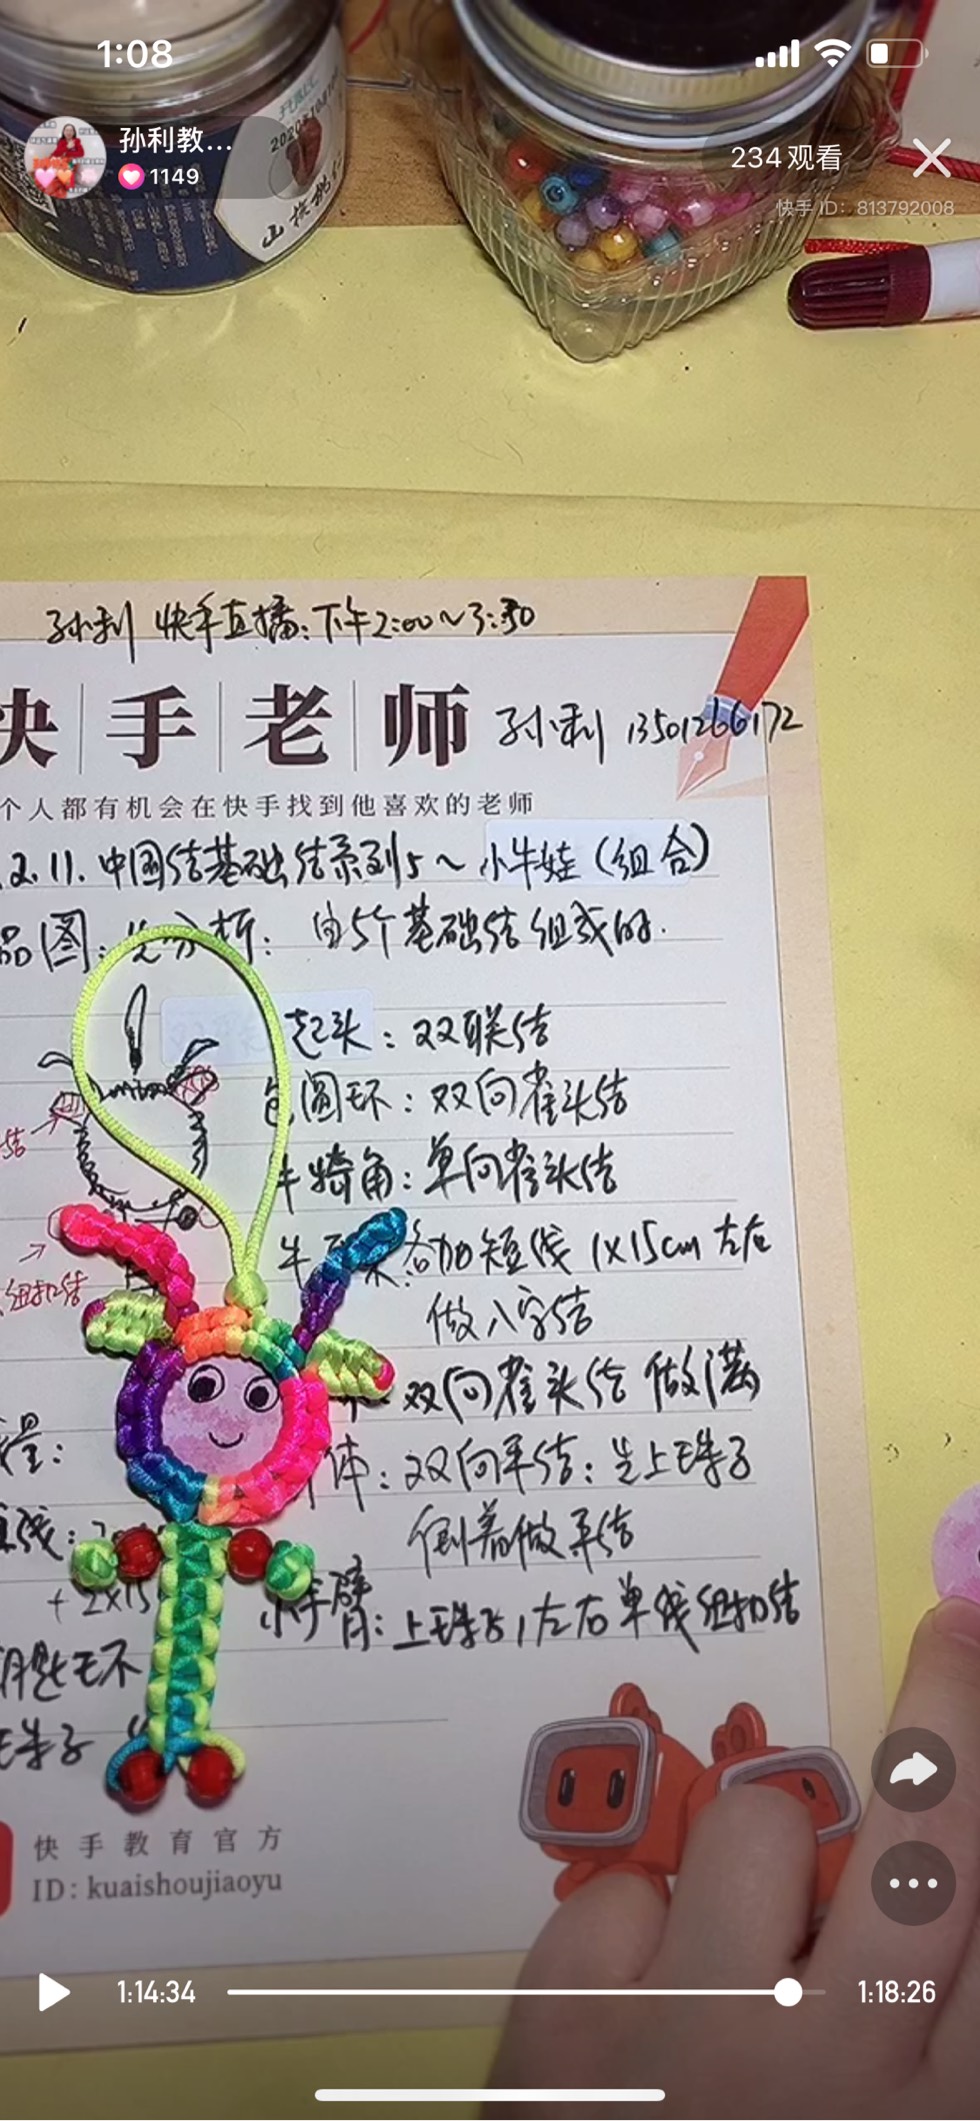 1:08
孙利教...
1149
234观看
快手 ID: 813792008
2020年10月1
山楂
孙利 快手直播:下午2:00~3:30
快手老师
孙利 13501266172
个人都有机会在快手找到他喜欢的老师
.2.11.中国结基础结系列5~小牛娃(组合)
品图:先分析: 由5个基础结组成的.
起头:双联结
包圆环:双向雀头结
结
牛犄角:单向雀头结
各加短线 1x15cm 左右
纽扣结
做八字结
双向雀头结 做满
量:
体:双向平结:先上珠子
线:
倒着做平结
+2x15
小手臂:上珠子,左右单线纽扣结
钥匙环
珠子
快手教育官方
ID: kuaishoujiaoyu
1:14:34
1:18:26